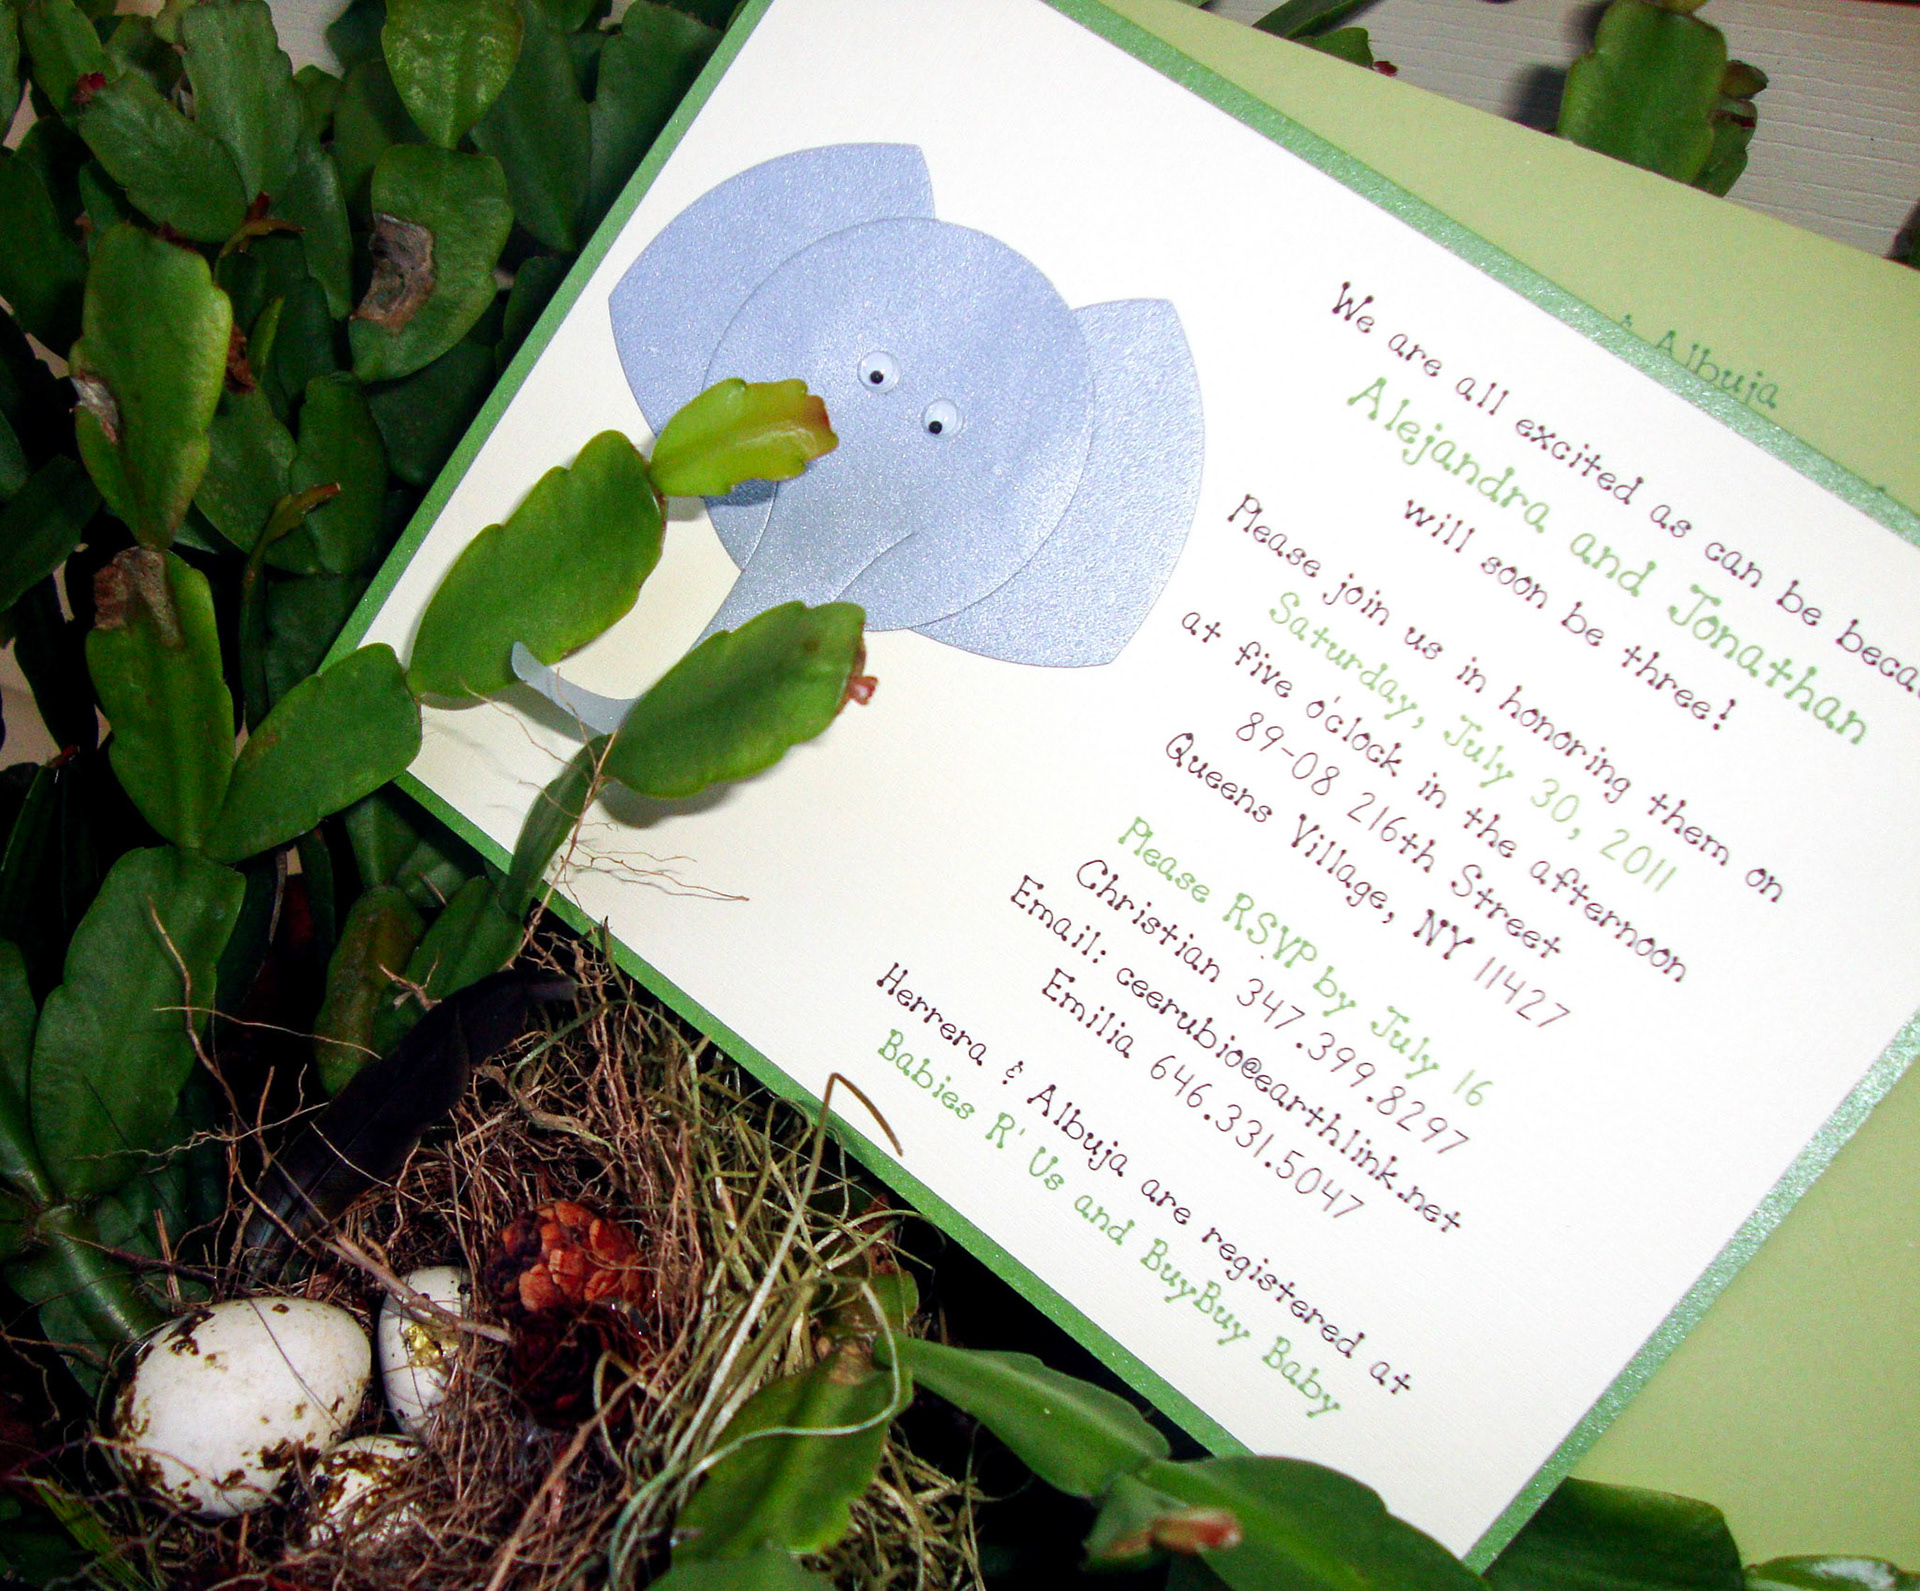 We are all excited as can be beca
Alejandra and Jonathan
will soon be three!
Please join us in honoring them on
Saturday, July 30, 2011
at five o'clock in the afternoon
89-08 216th Street
Queens Village, NY 11427
Please RSVP by July 16
Christian 347.399.8297
Email: ceerubio@earthlink.net
Emilia 646.331.5047
Herrera & Albuja are registered at
Babies R' Us and BuyBuy Baby
& Albuja